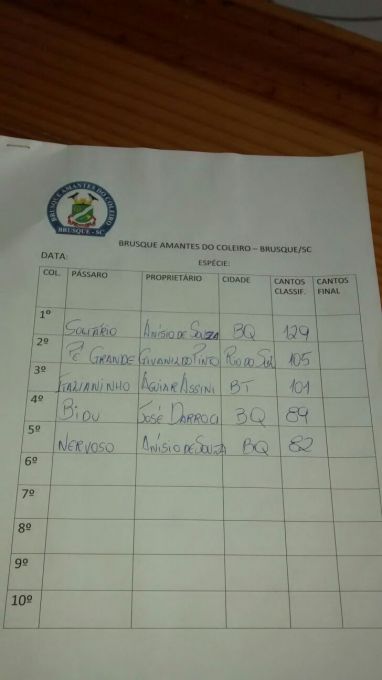 BRUSQUE AMANTES DO COLEIRO
BRUSQUE - SC
BRUSQUE AMANTES DO COLEIRO – BRUSQUE/SC
DATA: ESPÉCIE:
COL. PÁSSARO PROPRIETÁRIO CIDADE CANTOS CLASSIF. CANTOS FINAL
1º SOLITÁRIO ANÍSIO DE SOUZA BQ 129
2º PÉ GRANDE RIO DO SUL 105
3º AGUIAR ASSINI BT 101
4º BIDU JOSÉ DARROCI BQ 89
5º NERVOSO ANÍSIO DE SOUZA BQ 82
6º
7º
8º
9º
10º